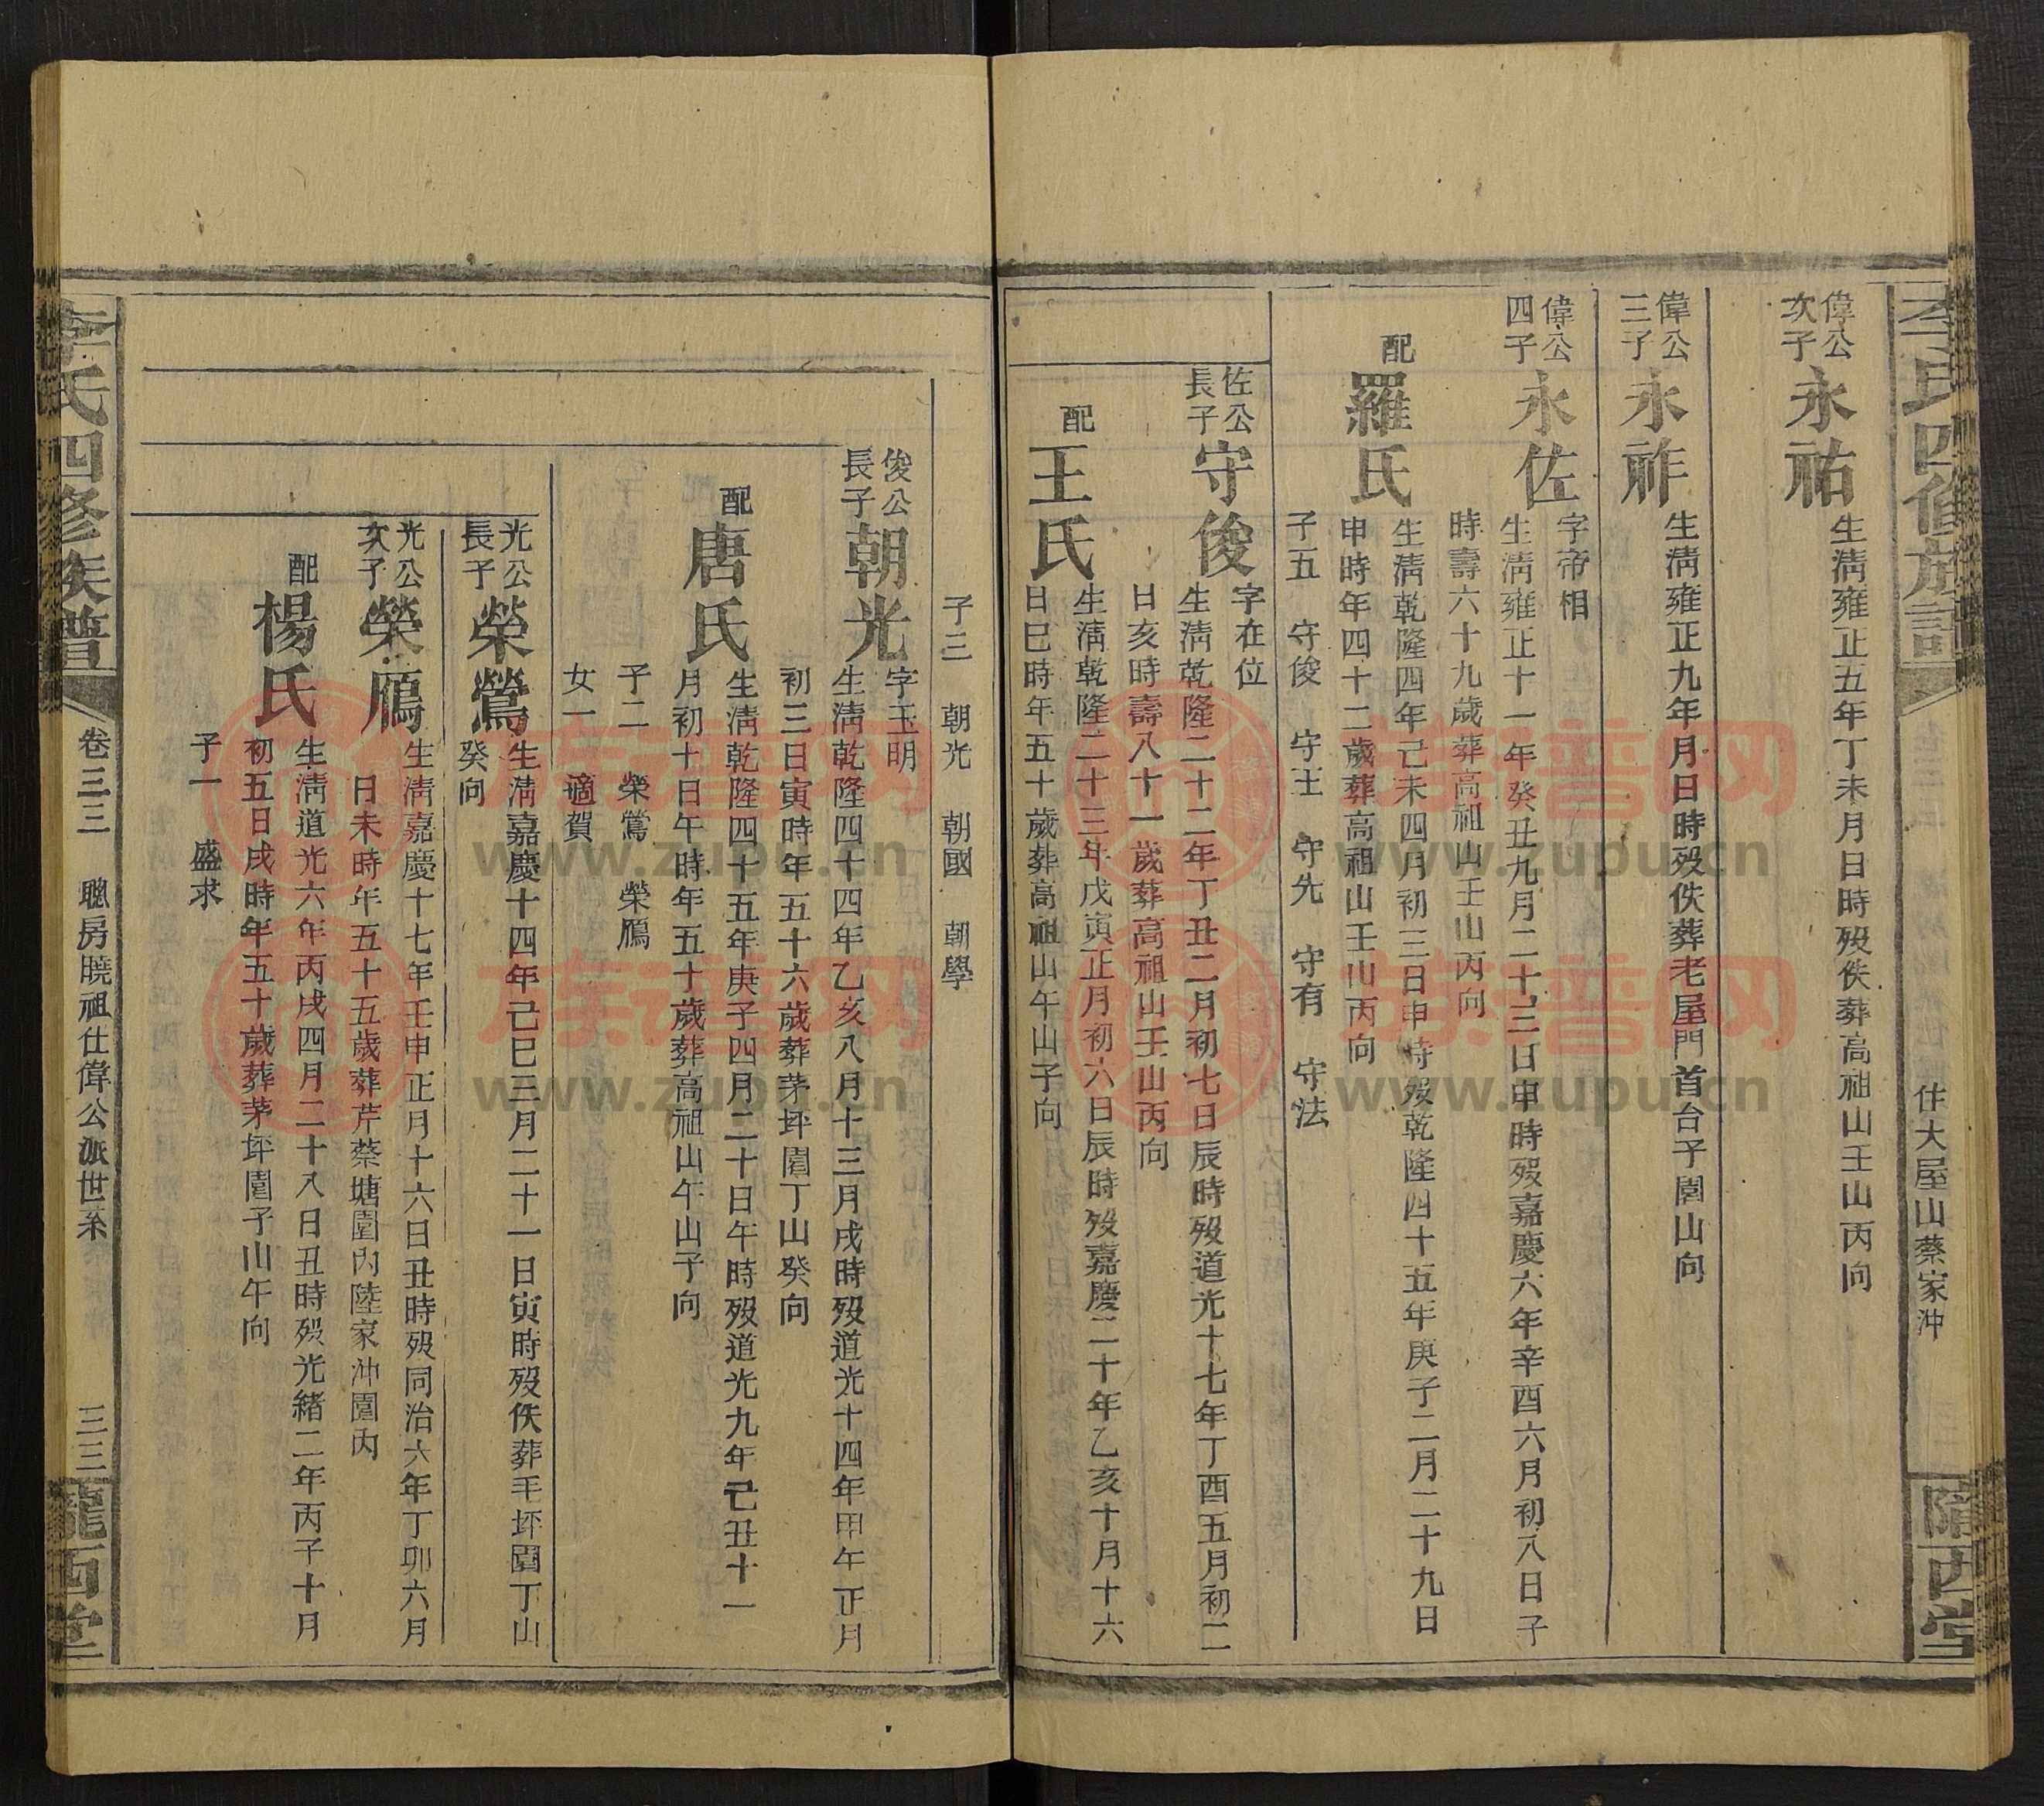 李氏四修族譜
住大屋山蔡家沖
隴西堂
偉公次子
永祐
生淸雍正五年丁未月日時歿佚葬高祖山壬山丙向
偉公三子
永祚
生淸雍正九年月日時歿佚葬老屋門首台子園山向
偉公四子
永佐
字帝相
生淸雍正十一年癸丑九月二十三日申時歿嘉慶六年辛酉六月初八日子
時壽六十九歲葬高祖山壬山丙向
配
羅氏
生淸乾隆四年己未四月初三日申時歿乾隆四十五年庚子二月二十九日
申時年四十二歲葬高祖山壬山丙向
子五 守俊 守王 守先 守有 守法
佐公長子
守俊
字在位
生淸乾隆二十二年丁丑二月初七日辰時歿道光十七年丁酉五月初二
日亥時壽八十一歲葬高祖山壬山丙向
配
王氏
生淸乾隆二十三年戊寅正月初六日辰時歿嘉慶二十年乙亥十月十六
日巳時年五十歲葬高祖山午山子向
子三 朝光 朝國 朝學
俊公長子
朝光
字玉明
生淸乾隆四十四年乙亥八月十三月戌時歿道光十四年甲午正月
初三日寅時年五十六歲葬茅坪園丁山癸向
配
唐氏
生淸乾隆四十五年庚子四月二十日午時歿道光九年己丑十一
月初十日午時年五十歲葬高祖山午山子向
子二 榮鶯 榮鴈
女一 適賀
光公長子
榮鶯
生淸嘉慶十四年己巳三月二十一日寅時歿佚葬毛坪園丁山
癸向
光公次子
榮鴈
生淸嘉慶十七年壬申正月十六日丑時歿同治六年丁卯六月
日未時年五十五歲葬芹蔡塘園內陸家沖園內
配
楊氏
生淸道光六年丙戌四月二十八日丑時歿光緖二年丙子十月
初五日戌時年五十歲葬茅坪園子山午向
子一 盛求
李氏四修族譜
卷三三 聰房曉祖仕偉公派世系
三三
隴西堂
族谱网
www.zupu.cn
族谱网
www.zupu.cn
族谱网
www.zupu.cn
族谱网
www.zupu.cn